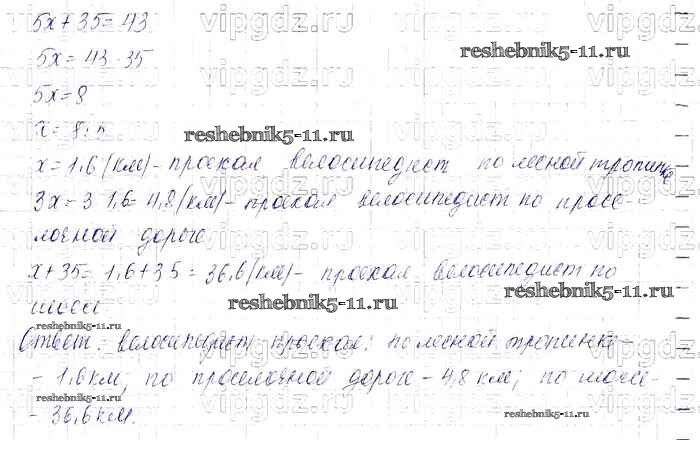 5x + 35 = 43
5x = 43 - 35
5x = 8
x = 8 : 5
x = 1,6 (км) - проехал велосипедист по лесной тропинке
3x = 3 · 1,6 = 4,8 (км) - проехал велосипедист по просе-
лочной дороге
x + 35 = 1,6 + 35 = 36,6 (км) - проехал велосипедист по
шоссе
Ответ: велосипедист проехал: по лесной тропинке -
- 1,6 км; по проселочной дороге - 4,8 км; по шоссе -
- 36,6 км.
reshebnik5-11.ru
reshebnik5-11.ru
reshebnik5-11.ru
reshebnik5-11.ru
reshebnik5-11.ru
reshebnik5-11.ru
reshebnik5-11.ru